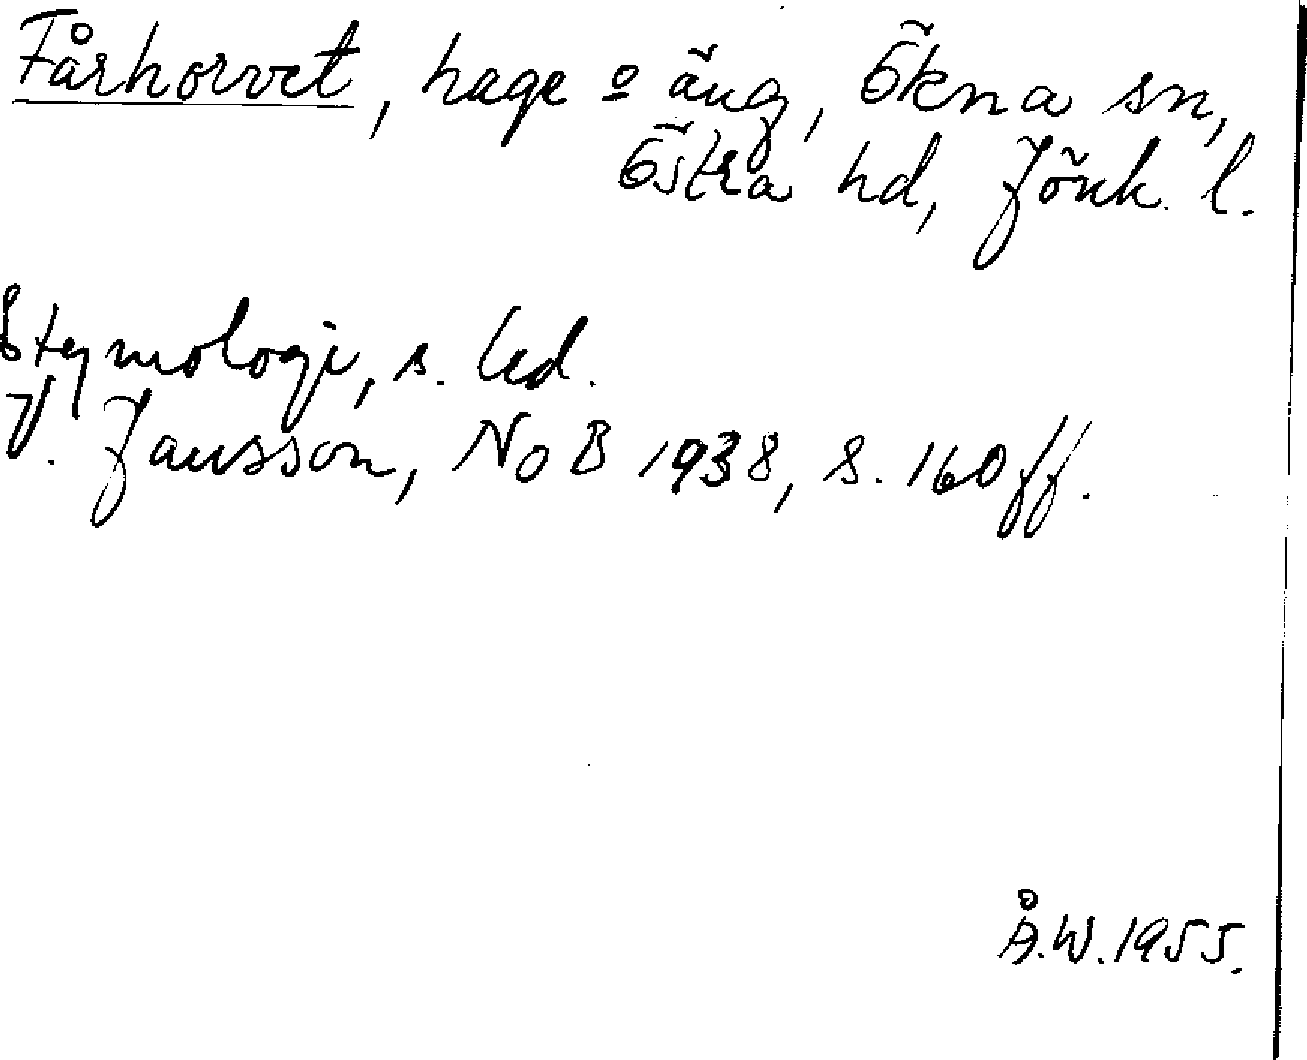 Fårhorvet, hage o äng, Ökna sn,
Östra hd, Jönk. l.
Etymologi, s. Ud.
V. Jansson, NoB 1938, s. 160 ff.
Å.W. 1955.